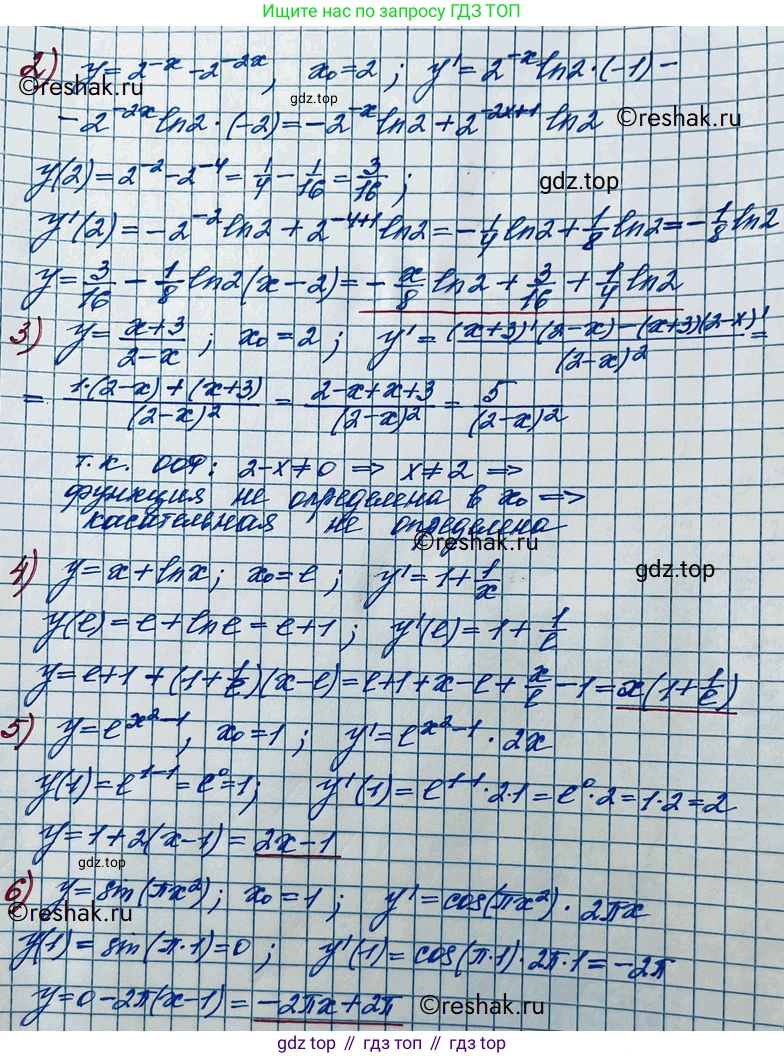 Ищите нас по запросу ГДЗ ТОП
2) y=2^{-x}-2^{-2x}, x₀=2; y'=2^{-x}ln2·(-1)-
©reshak.ru
gdz.top
-2^{-2x}ln2·(-2)=-2^{-x}ln2+2^{-2x+1}ln2
©reshak.ru
y(2)=2^{-2}-2^{-4}=1/4-1/16=3/16;
gdz.top
y'(2)=-2^{-2}ln2+2^{-4+1}ln2=-1/4 ln2+1/8 ln2=-1/8 ln2
y=3/16-1/8 ln2(x-2)=-x/8 ln2+3/16+1/4 ln2
3) y=(x+3)/(2-x); x₀=2; y'=((x+3)'(2-x)-(x+3)(2-x)')/(2-x)²=
=(1·(2-x)+(x+3))/(2-x)²=(2-x+x+3)/(2-x)²=5/(2-x)²
т.к. ООФ: 2-x≠0 ⇒ x≠2 ⇒
функция не определена в x₀ ⇒
касательная не определена
©reshak.ru
4) y=x+lnx; x₀=e; y'=1+1/x
gdz.top
y(e)=e+lne=e+1; y'(e)=1+1/e
y=e+1+(1+1/e)(x-e)=e+1+x-e+x/e-1=x(1+1/e)
5) y=e^{x²-1}, x₀=1; y'=e^{x²-1}·2x
y(1)=e^{1-1}=e⁰=1; y'(1)=e^{1-1}·2·1=e⁰·2=1·2=2
y=1+2(x-1)=2x-1
gdz.top
6) y=sin(πx²); x₀=1; y'=cos(πx²)·2πx
©reshak.ru
y(1)=sin(π·1)=0; y'(1)=cos(π·1)·2π·1=-2π
y=0-2π(x-1)=-2πx+2π
©reshak.ru
gdz.top // гдз.топ // gdz.top